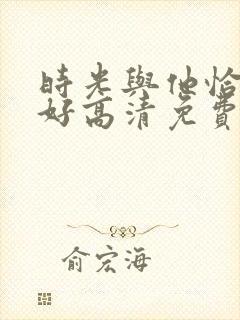 時光與他恰
好高清免費
俞宏海